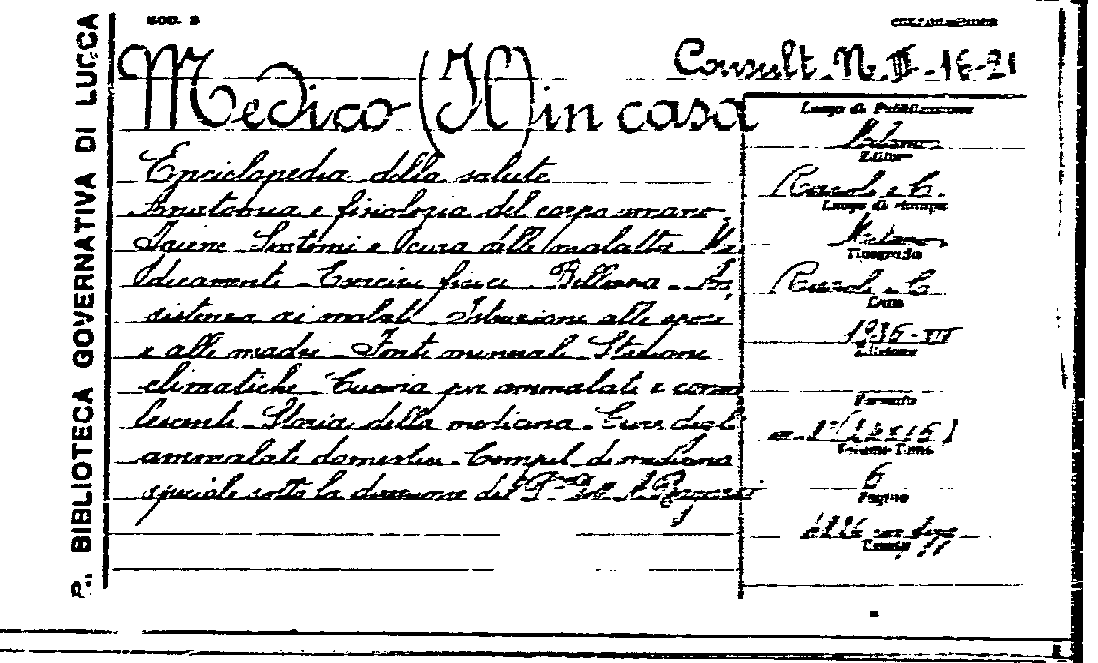 R. BIBLIOTECA GOVERNATIVA DI LUCCA
MOD. 2
Consult. N. III-16-21
Medico (Il) in casa
Enciclopedia della salute
Anatomia e fisiologia del corpo umano,
Igiene Sintomi e cura delle malattie Me
dicamenti - Esercizi fisici - Bellezza - As
sistenza ai malati - Istruzioni alle spose
e alle madri - Fonti minerali - Stazioni
climatiche - Cucina per ammalati e conva
lescenti - Storia della medicina - Cura degli
ammalati domestici - Compil. di medicina
speciale sotto la direzione del
Luogo di Pubblicazione
Milano
Editore
e C.
Luogo di stampa
Milano
Tipografia
e C.
Data
1936-XIV
Edizione
Formato
Volume Tomo
6
Pagine